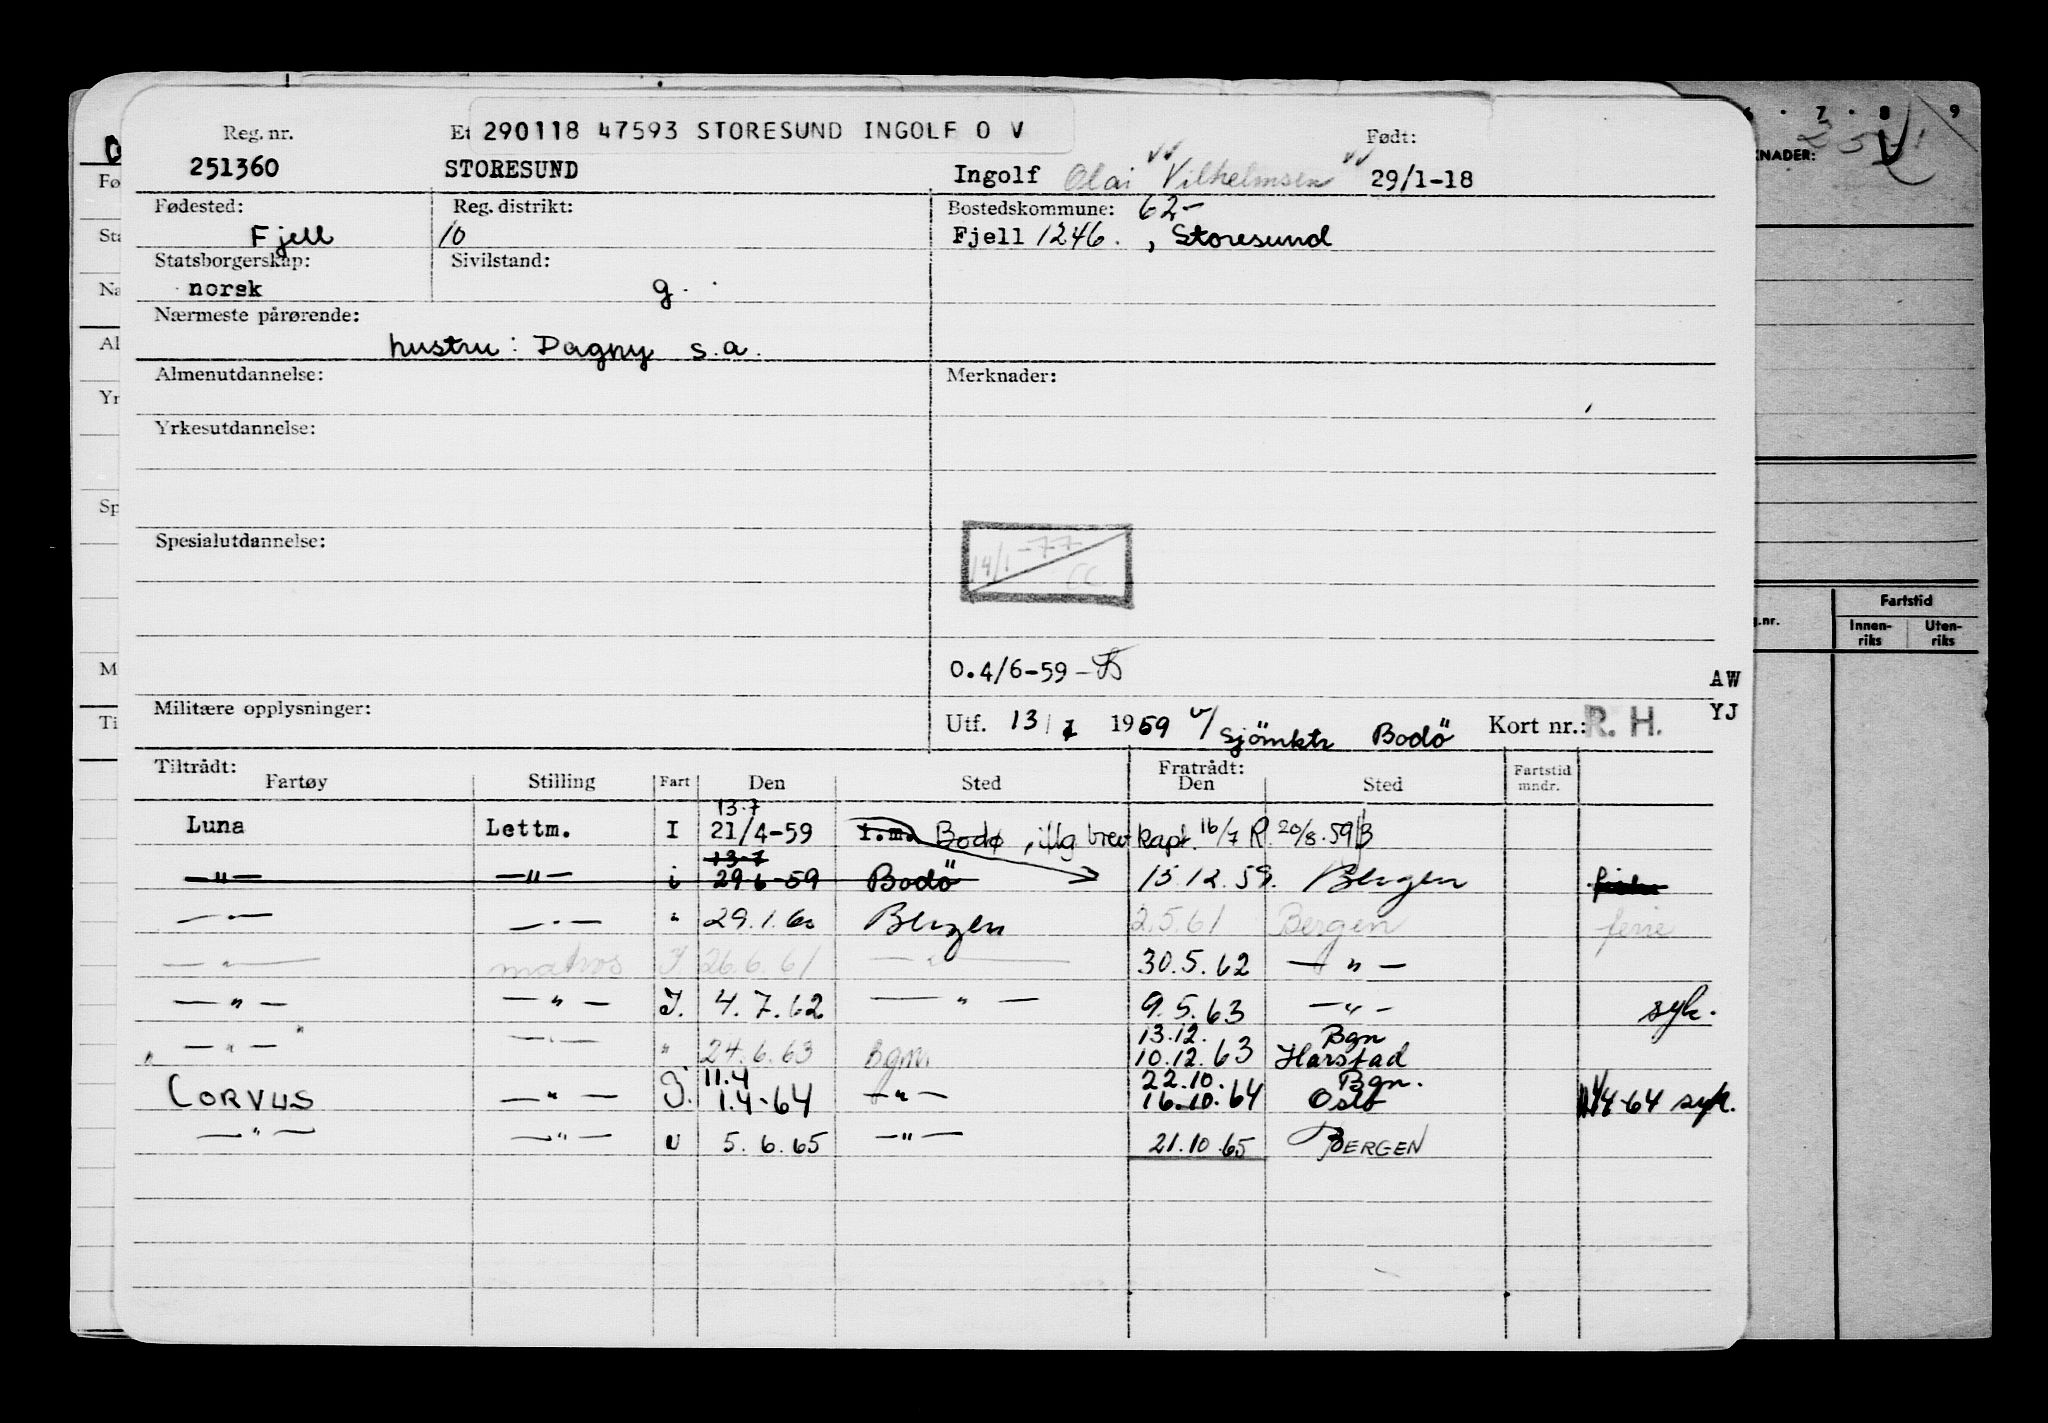 Reg. nr. Et 290118 47593 STORESUND INGOLF O V Født:
251360 STORESUND Ingolf Olai Vilhelmsen 29/1-18
Fødested: Reg. distrikt: Bostedskommune: 62-
Fjell 10 Fjell 1246. , Storesund
Statsborgerskap: Sivilstand:
norsk g.
Nærmeste pårørende:
hustru: Dagny s.a.
Almenutdannelse: Merknader:
Yrkesutdannelse:
Spesialutdannelse:
14/1 -77
0.4/6-59
AW
Militære opplysninger: Utf. 13/7 1959 v/ Sjömktr Bodö Kort nr.: R. H. YJ
Tiltrådt: Fratrådt:
Fartøy Stilling Fart Den Sted Den Sted Fartstid mndr.
13.7
Luna Lettm. I 21/4-59 t.m. Bodø, illg brev kapt. 16/7 R. 20/8.59
13-7
—"— —"— i 29.6-59 Bodö 15.12.59. Bergen
—"— —"— " 29.1.60 Bergen 2.5.61 Bergen ferie
—"— matros I 26.6.61 —"— 30.5.62 —"—
—"— —"— I. 4.7.62 —"— 9.5.63 —"— syk.
13.12. Bgn
" —"— " —"— " 24.6.63 Bgn. 10.12.63 Harstad
11.4 22.10. Bgn.
CORVUS —"— I. 1.4-64 —"— 16.10.64 Oslo 11/4-64 syk.
—"— —"— U 5.6.65 —"— 21.10.65 BERGEN
6 · 7 · 8 · 9
KNADER:
g.nr.
Fartstid
Innen-
riks
Uten-
riks
Fø
Sta
Na
Al
Yr
Sp
M
Ti